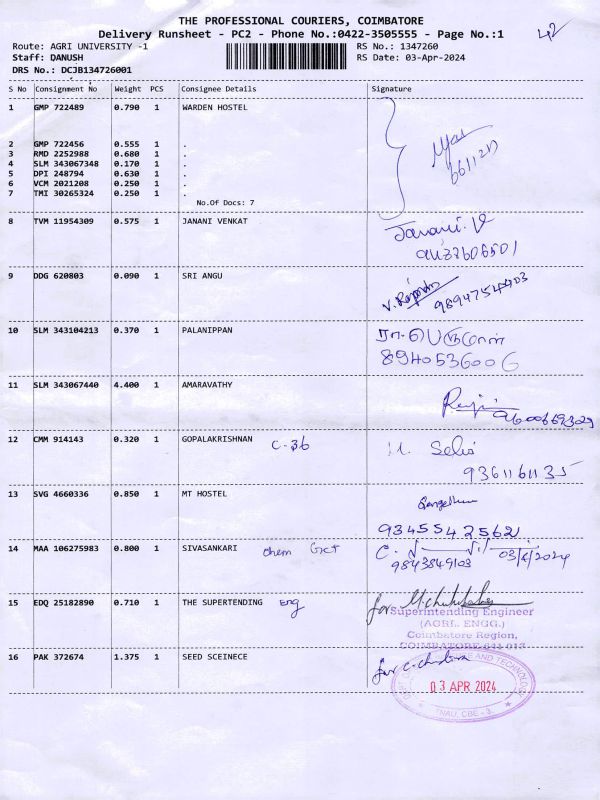 THE PROFESSIONAL COURIERS, COIMBATORE
Delivery Runsheet - PC2 - Phone No.:0422-3505555 - Page No.:1
42
Route: AGRI UNIVERSITY -1
RS No.: 1347260
Staff: DANUSH
RS Date: 03-Apr-2024
DRS No.: DCJB134726001
S No Consignment No Weight PCS Consignee Details Signature
1 GMP 722489 0.790 1 WARDEN HOSTEL
2 GMP 722456 0.555 1 .
3 RMD 2252988 0.680 1 .
4 SLM 343067348 0.170 1 .
5 DPI 248794 0.630 1 .
6 VCM 2021208 0.250 1 .
7 TMI 30265324 0.250 1 .
No.Of Docs: 7
8 TVM 11954309 0.575 1 JANANI VENKAT Janani. V
9 DDG 620803 0.090 1 SRI ANGU
10 SLM 343104213 0.370 1 PALANIPPAN
8940536006
11 SLM 343067440 4.400 1 AMARAVATHY
9600669329
12 CMM 914143 0.320 1 GOPALAKRISHNAN C-36
9361161135
13 SVG 4660336 0.850 1 MT HOSTEL
9345542562
14 MAA 106275983 0.800 1 SIVASANKARI chem
9843849103 03/4/2024
15 EDQ 25182890 0.710 1 THE SUPERTENDING Eng for
Superintending Engineer
(AGRL. ENGG.)
Coimbatore Region,
COIMBATORE-641 013
16 PAK 372674 1.375 1 SEED SCEINECE for
AND TECHNOLOGY
03 APR 2024
TNAU, CBE - 3.